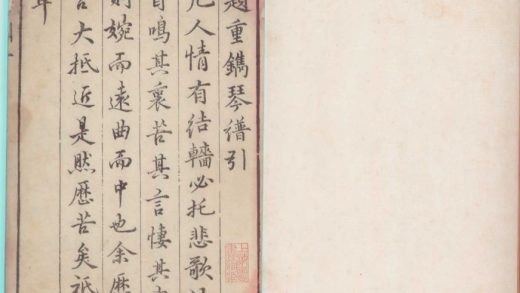 題重鐫琴譜引
凡人情有結轖必托悲歌
自鳴其衷苦其言悽其
則婉而遠曲而中也余歷
大抵近是然歷苦矣祗